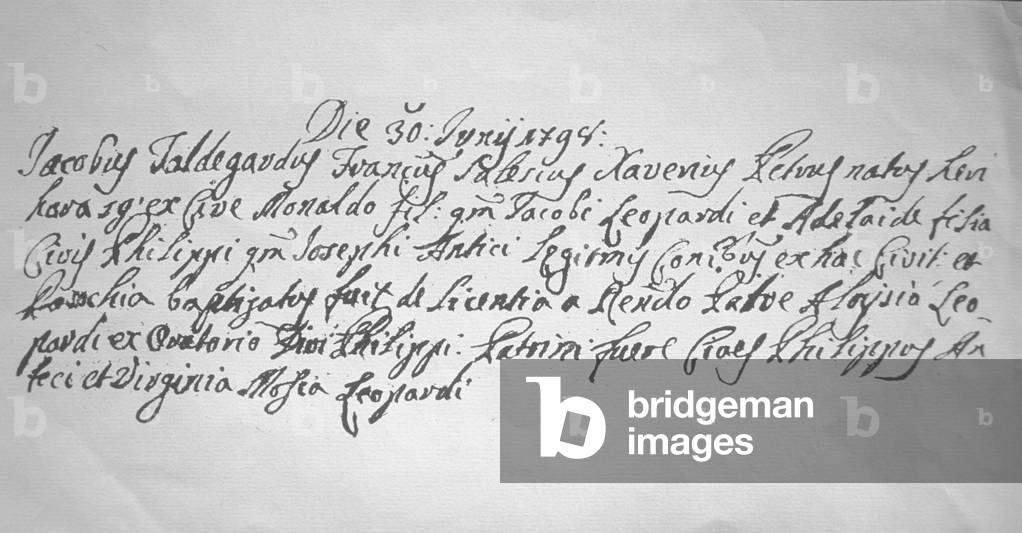 Die 30: Junij 1798:
Jacobus Taldegardus Franc̃us Salesius Xaverius Petrus natus heri
hora 19: ex Cive Monaldo fil: qm̃ Jacobi Leopardi et Adelaide filia
Civis Philippi qm̃ Josephi Antici legitimis Conibus ex hac Civit: et
Parochia baptizatus fuit de licentia a Rendo Patre Aloysio Leo-
pardi ex Oratorio Divi Philippi: Patrini fuere Cives Philippus An
tici et Virginia Mosia Leopardi
bridgeman
images